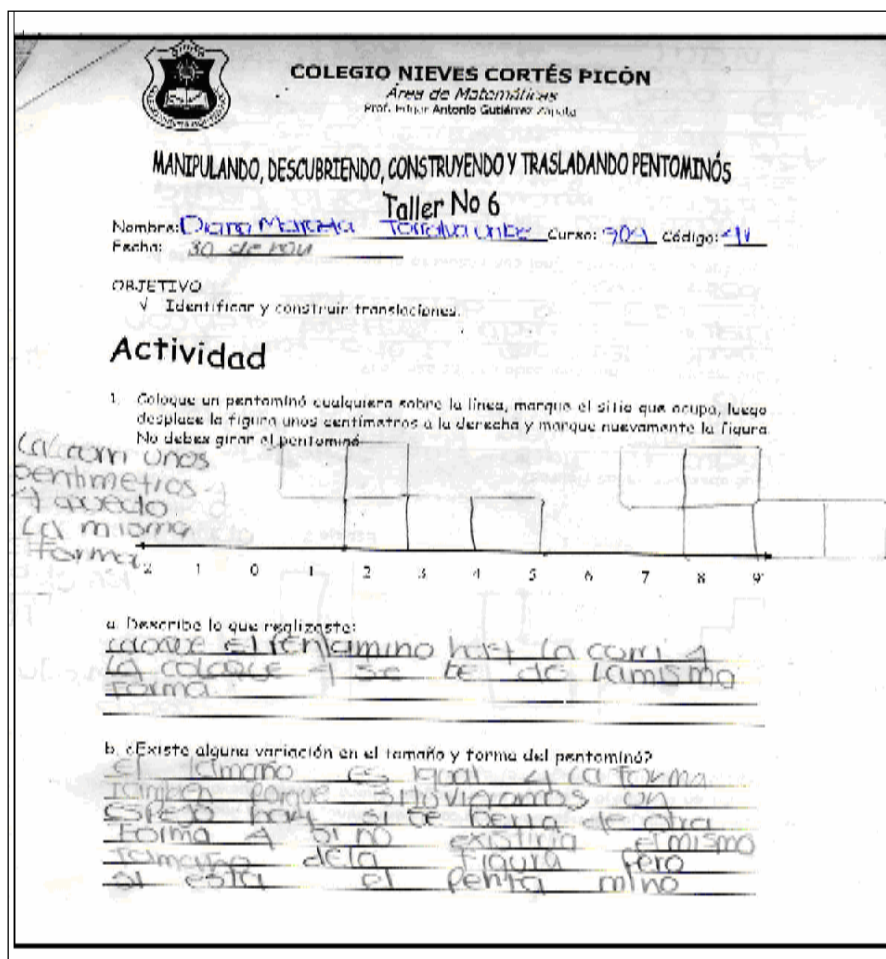 COLEGIO NIEVES CORTÉS PICÓN
Área de Matemáticas
Prof. Edgar Antonio Gutiérrez Zapata
MANIPULANDO, DESCUBRIENDO, CONSTRUYENDO Y TRASLADANDO PENTOMINÓS
Taller No 6
Nombre: Diana Marcela Torralva Uribe Curso: 904 Código:
Fecha: 30 de
OBJETIVO
√ Identificar y construir translaciones.
Actividad
1. Coloque un pentominó cualquiera sobre la línea, marque el sitio que ocupa, luego
desplace la figura unos centímetros a la derecha y marque nuevamente la figura.
No debes girar el pentominó
La corri unos
sentimetros y
quedo
La misma
forma
2 1 0 1 2 3 4 5 6 7 8 9
a. Describe lo que realizaste:
coloque el pentamino hay la corri y
la coloque y se ve de la misma
forma
b. ¿Existe alguna variación en el tamaño y forma del pentominó?
El tamaño es igual y la forma
tambien porque si tuvieramos un
espejo hay si se veria de otra
forma y si no existiria el mismo
tamaño de la figura pero
si esta el penta mino